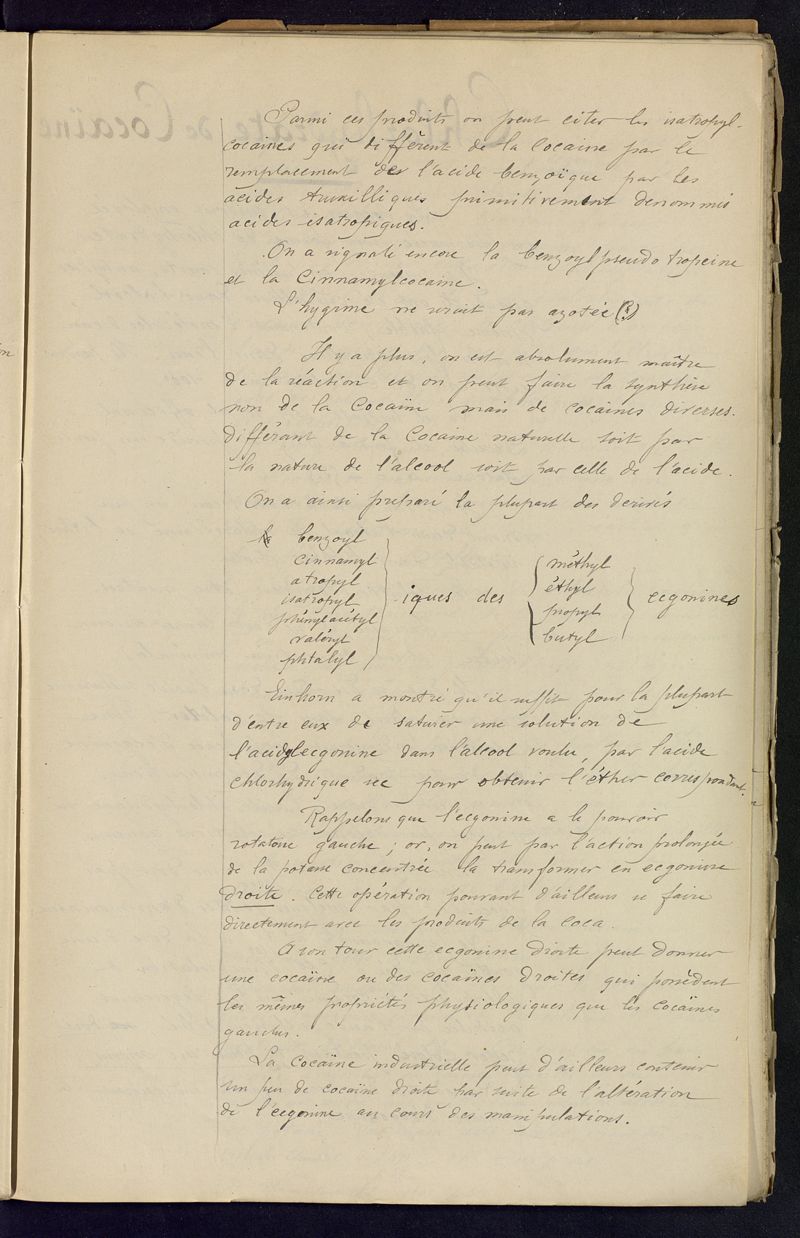 Parmi ces produits on peut citer les isatropyl-
cocaines qui diffèrent de la Cocaine par le
remplacement de l'acide benzoïque par les
acides truxilliques primitivement denommés
acides isatropiques.
On a signalé encore la benzoylpseudotropeine
et la Cinnamylcocaine.
L'hygrine ne serait pas azotée (?)
Il y a plus, on est absolument maître
de la réaction et on peut faire la synthèse
non de la Cocaïne mais de cocaines diverses.
différant de la Cocaine naturelle soit par
la nature de l'alcool soit par celle de l'acide.
On a ainsi préparé la plupart des derivés
benzoyl
cinnamyl
atropyl
isatropyl
phénylacétyl
valéryl
phtalyl
iques des
méthyl
éthyl
propyl
butyl
ecgonines
Einhorn a montré qu'il suffit pour la plupart
d'entre eux de saturer une solution de
l'acidylecgonine dans l'alcool voulu, par l'acide
chlorhydrique sec pour obtenir l'éther correspondant.
Rappelons que l'ecgonine a le pouvoir
rotatoire gauche; or, on peut par l'action prolongée
de la potasse concentrée la transformer en ecgonine
droite. Cette opération pouvant d'ailleurs se faire
directement avec les produits de la Coca.
A son tour cette ecgonine droite peut donner
une cocaïne ou des cocaïnes droites qui possèdent
les mêmes propriétés physiologiques que les Cocaïnes
gauches.
La Cocaïne industrielle peut d'ailleurs contenir
un peu de cocaine droite par suite de l'altération
de l'ecgonine au cours des manipulations.